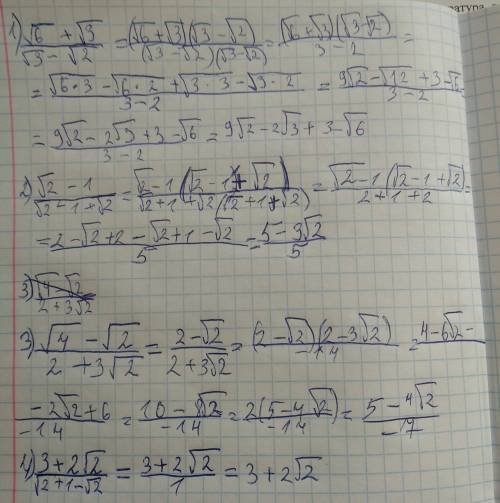 1) (√6 + √3)/(√3 − √2) = (√6 + √3)(√3 − √2)/(√3 − √2)(√3 − √2) = (√6 + √3)(√3 − √2)/(3 − 2) =
= (√6·3 − √6·2 + √3·3 − √3·2)/(3 − 2) = (9√2 − √12 + 3 − √6)/(3 − 2)
= (9√2 − 2√3 + 3 − √6)/(3 − 2) = 9√2 − 2√3 + 3 − √6
2) (√2 − 1)/(√2 − 1 + √2) = √2 − 1(√2 − 1 + √2)/√2 + 1 + √2(√2 + 1 + √2) = √2 − 1(√2 − 1 + √2)/(2 + 1 + 2) =
= (2 − √2 + 2 − √2 + 1 − √2)/5 = (5 − 3√2)/5
3) (√4 √2)/(2 + 3√2)
3) (√4 − √2)/(2 + 3√2) = (2 − √2)/(2 + 3√2) = (2 − √2)(2 − 3√2)/−14 = 4 − 6√2 −
(− 2√2 + 6)/−14 = (10 − 8√2)/−14 = 2(5 − 4√2)/−14 = (5 − 4√2)/−7
4) (3 + 2√2)/(√2 + 1 − √2) = (3 + 2√2)/1 = 3 + 2√2